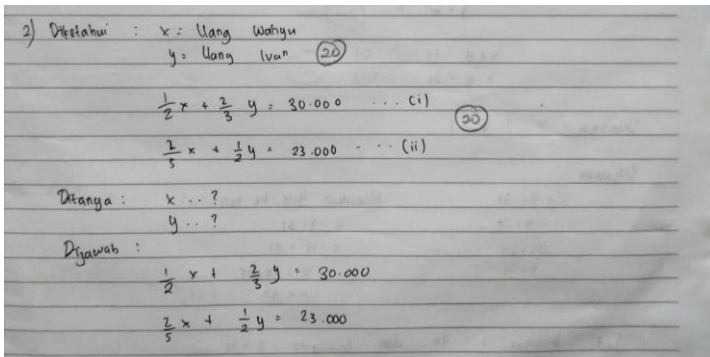 2) Diketahui : x = Uang Wahyu
y = Uang Ivan (20)
1/2 x + 2/3 y = 30.000 ... (i)
(20)
2/5 x + 1/2 y = 23.000 ... (ii)
Ditanya : x .. ?
y .. ?
Dijawab :
1/2 x + 2/3 y = 30.000
2/5 x + 1/2 y = 23.000